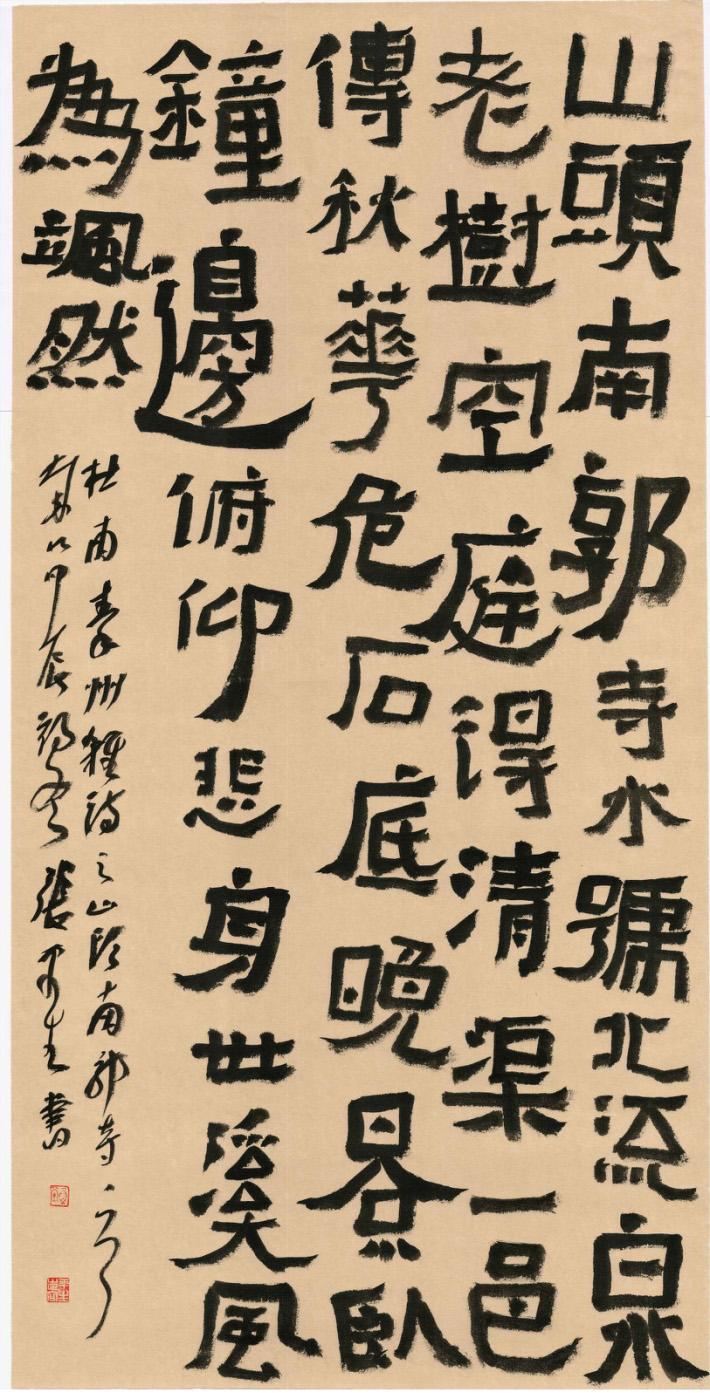 山頭南郭寺水號北流泉
老樹空庭得清渠一邑
傳秋華危石底晚景臥
鐘邊俯仰悲身世溪風
為颯然
杜甫秦州雜詩之山頭南郭寺一首
歲次甲辰張平生書